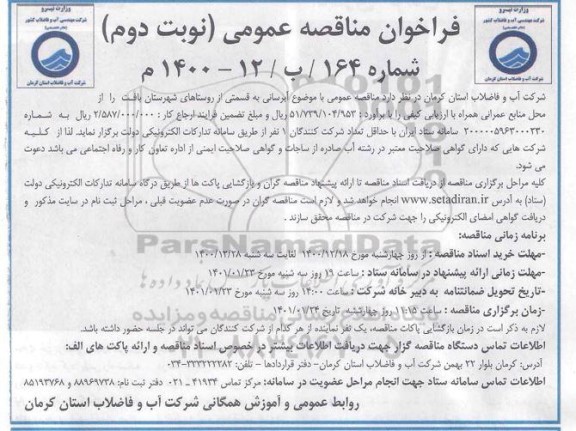 وزارت نیرو
شرکت مهندسی آب و فاضلاب کشور
شرکت آب و فاضلاب استان کرمان
وزارت نیرو
شرکت مهندسی آب و فاضلاب کشور
شرکت آب و فاضلاب استان کرمان
فراخوان مناقصه عمومی (نوبت دوم)
شماره ۱۶۴ / ب / ۱۲ – ۱۴۰۰ م
شرکت آب و فاضلاب استان کرمان در نظر دارد مناقصه عمومی با موضوع آبرسانی به قسمتی از روستاهای شهرستان بافت را از
محل منابع عمرانی همراه با ارزیابی کیفی را با برآورد : ۵۱/۷۳۹/۱۰۴/۹۵۳ ریال و مبلغ تضمین فرایند ارجاع کار : ۲/۵۸۷/۰۰۰/۰۰۰ ریال به شماره
۲۰۰۰۰۰۵۹۶۳۰۰۰۳۳۰ سامانه ستاد ایران با حداقل تعداد شرکت کنندگان ۱ نفر از طریق سامانه تدارکات الکترونیکی دولت برگزار نمایند. لذا از کلیه
شرکت هایی که دارای گواهی صلاحیت معتبر در رشته آب صادره از ساجات و گواهی صلاحیت ایمنی از اداره تعاون کار و رفاه اجتماعی می باشد دعوت
می شود.
کلیه مراحل برگزاری مناقصه از دریافت اسناد مناقصه تا ارائه پیشنهاد مناقصه گران و بازگشایی پاکت ها از طریق درگاه سامانه تدارکات الکترونیکی دولت
(ستاد) به آدرس www.setadiran.ir انجام خواهد شد و لازم است مناقصه گران در صورت عدم عضویت قبلی ، مراحل ثبت نام در سایت مذکور و
دریافت گواهی امضای الکترونیکی را جهت شرکت در مناقصه محقق سازند .
برنامه زمانی مناقصه:
-مهلت خرید اسناد مناقصه : از روز چهارشنبه مورخ ۱۴۰۰/۱۲/۱۸ لغایت سه شنبه مورخ
-مهلت زمانی ارائه پیشنهاد در سامانه ستاد : ساعت ۱۹ روز سه شنبه مورخ ۱۴۰۱/۰۱/۲۳
-تاریخ تحویل ضمانتنامه به دبیر خانه شرکت : ساعت ۱۴:۰۰ روز سه شنبه مورخ ۱۴۰۱/۰۱/۲۳
-زمان برگزاری مناقصه : ساعت ۱۱:۱۵ روز چهارشنبه تاریخ ۱۴۰۱/۰۱/۲۴
لازم به ذکر است در زمان بازگشایی پاکات مناقصه، یک نفر نماینده از هر کدام از شرکت کنندگان می تواند در جلسه حضور داشته باشد.
اطلاعات تماس دستگاه مناقصه گزار جهت دریافت اطلاعات بیشتر در خصوص اسناد مناقصه و ارائه پاکت های الف:
آدرس: کرمان بلوار ۲۲ بهمن شرکت آب و فاضلاب استان کرمان- دفتر قراردادها – تلفن: ۳۳۲۲۲۲۸۳-۰۳۴
اطلاعات تماس سامانه ستاد جهت انجام مراحل عضویت در سامانه: مرکز تماس ۴۱۹۳۴ - ۰۲۱ دفتر ثبت نام: ۸۸۹۶۹۷۳۸ و ۸۵۱۹۳۷۶۸
روابط عمومی و آموزش همگانی شرکت آب و فاضلاب استان کرمان
ParsNamadData